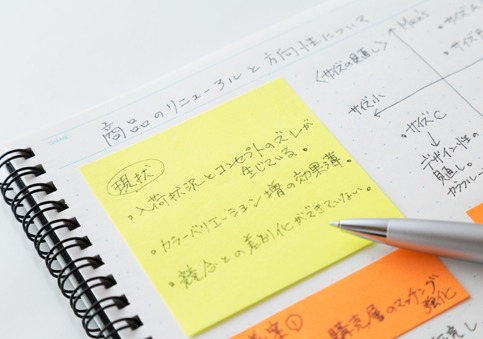 商品のリニューアルと方向性について
現状
・入荷状況とコンセプトのズレが
生じている。
・カラーバリエーション増の効果薄。
・競合との差別化ができていない。
〈サイズの見直し〉
Men's
・サイズA
サイズ小
・サイズC
↓
デザイン性の
見直し。
案①
購買層のマッチング
強化